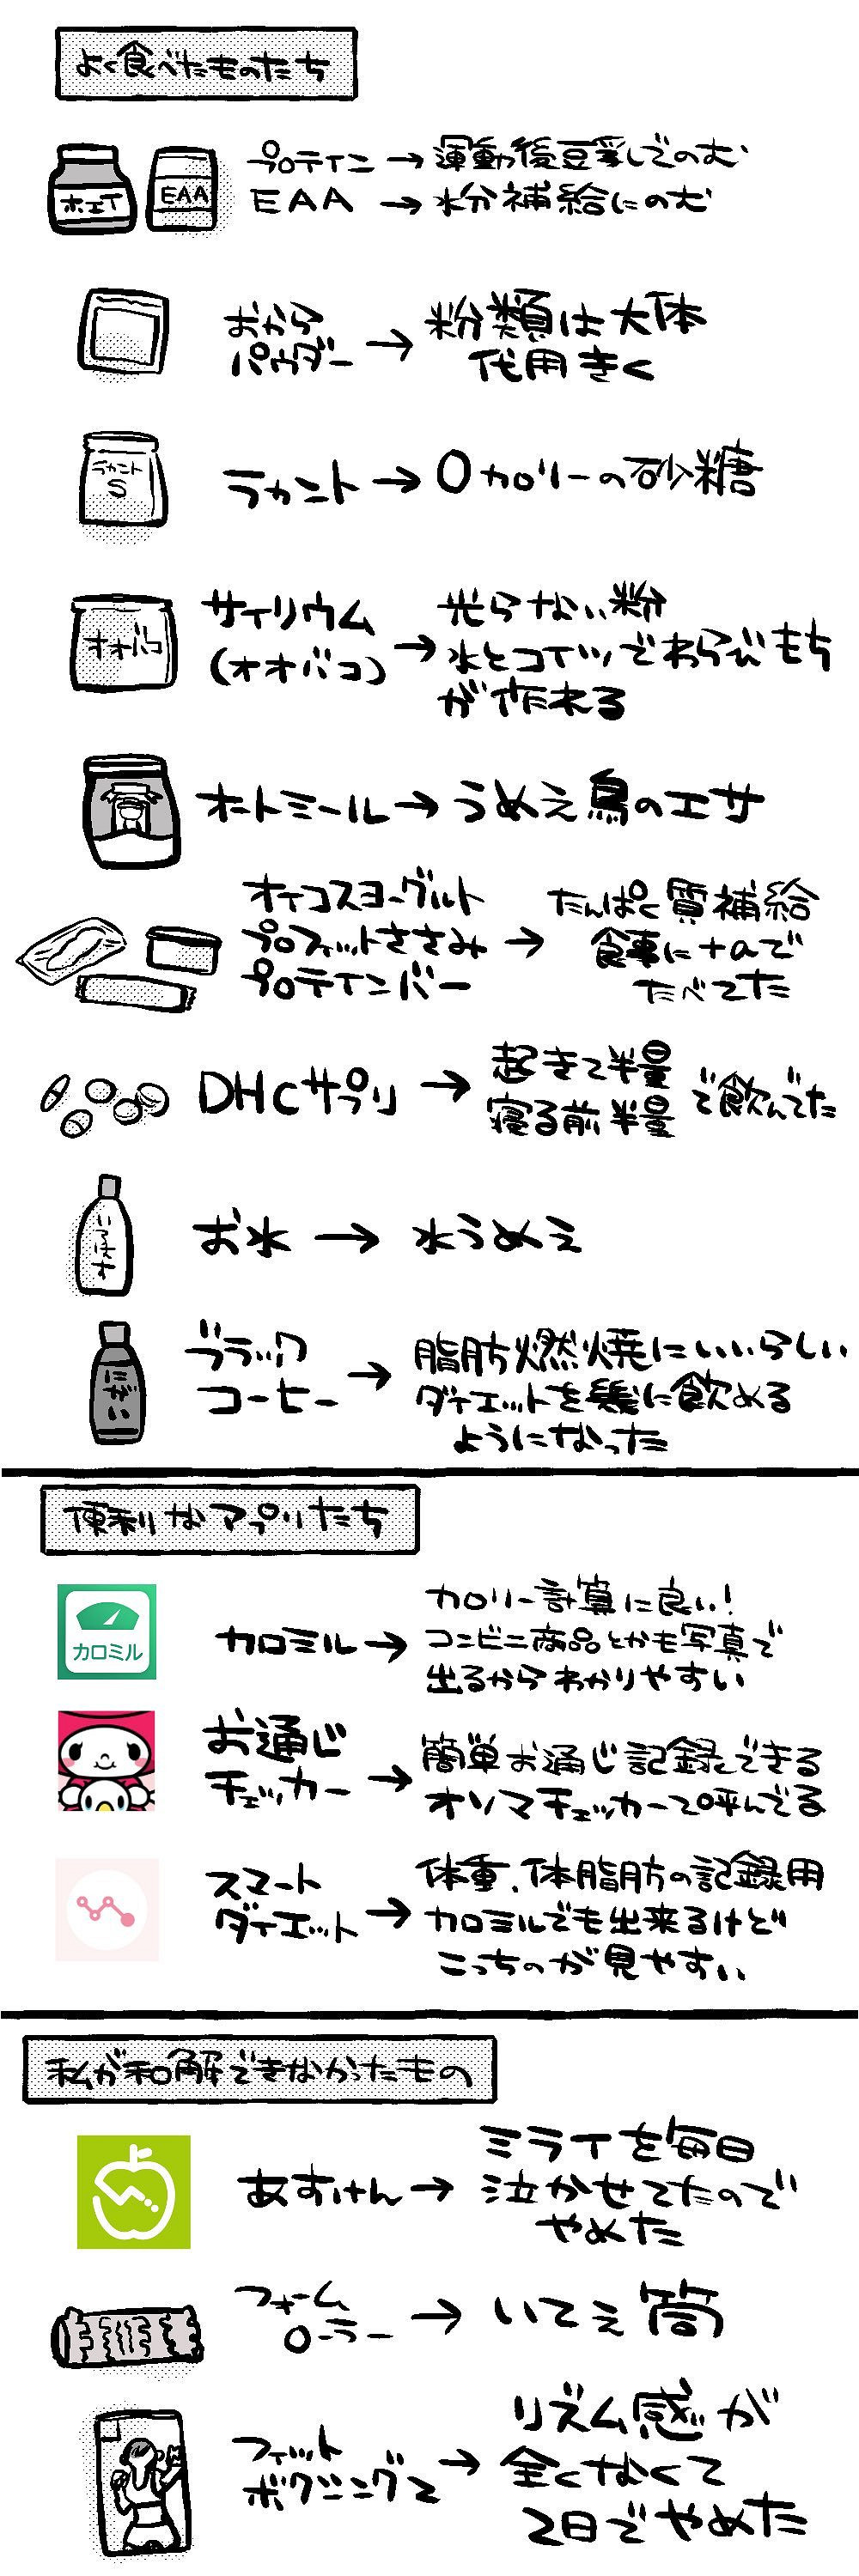 よく食べたものたち
ホエイ
EAA
プロテイン→運動後豆乳しでのむ
EAA→水分補給にのむ
おから
パウダー
→粉類は大体
代用きく
ラカント
S
ラカント→0カロリーの砂糖
オオバコ
サイリウム
(オオバコ)
→光らない粉
水とコイツでわらびもち
が作れる
オートミール→うめえ鳥のエサ
オイコスヨーグルト
プロフィットささみ
プロテインバー
→たんぱく質補給
食事に+αで
たべてた
DHCサプリ→
起きて半量
寝る前半量
で飲んでた
いろはす
お水→水うめえ
にがい
ブラック
コーヒー
→脂肪燃焼にいいらしい
ダイエットを機に飲める
ようになった
便利なアプリたち
カロミル
カロミル→
カロリー計算に良い!
コンビニ商品とかも写真で
出るからわかりやすい
お通じ
チェッカー
→簡単お通じ記録できる
オソマチェッカーて呼んでる
スマート
ダイエット
→体重、体脂肪の記録用
カロミルでも出来るけど
こっちのが見やすい
私が和解できなかったもの
あすけん→
ミライを毎日
泣かせてたので
やめた
フォーム
ローラー
→いてえ筒
フィット
ボクシング2
→リズム感が
全くなくて
2日でやめた